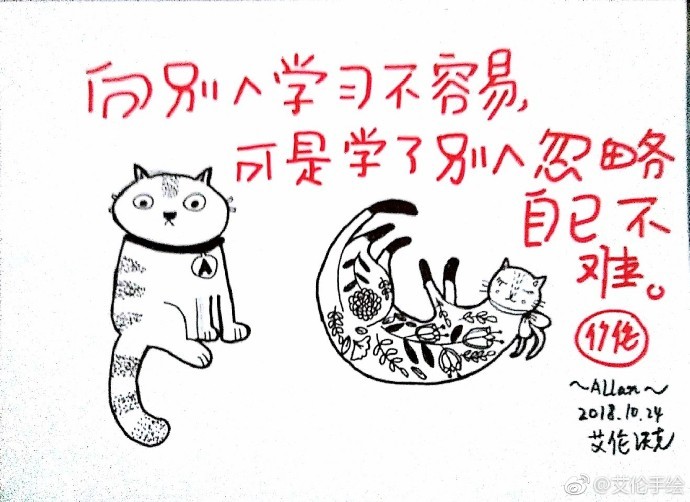 向别人学习不容易,
可是学了别人忽略
自已不
难。
A
~Allan~
2018.10.24
艾伦沃克
@艾伦手绘